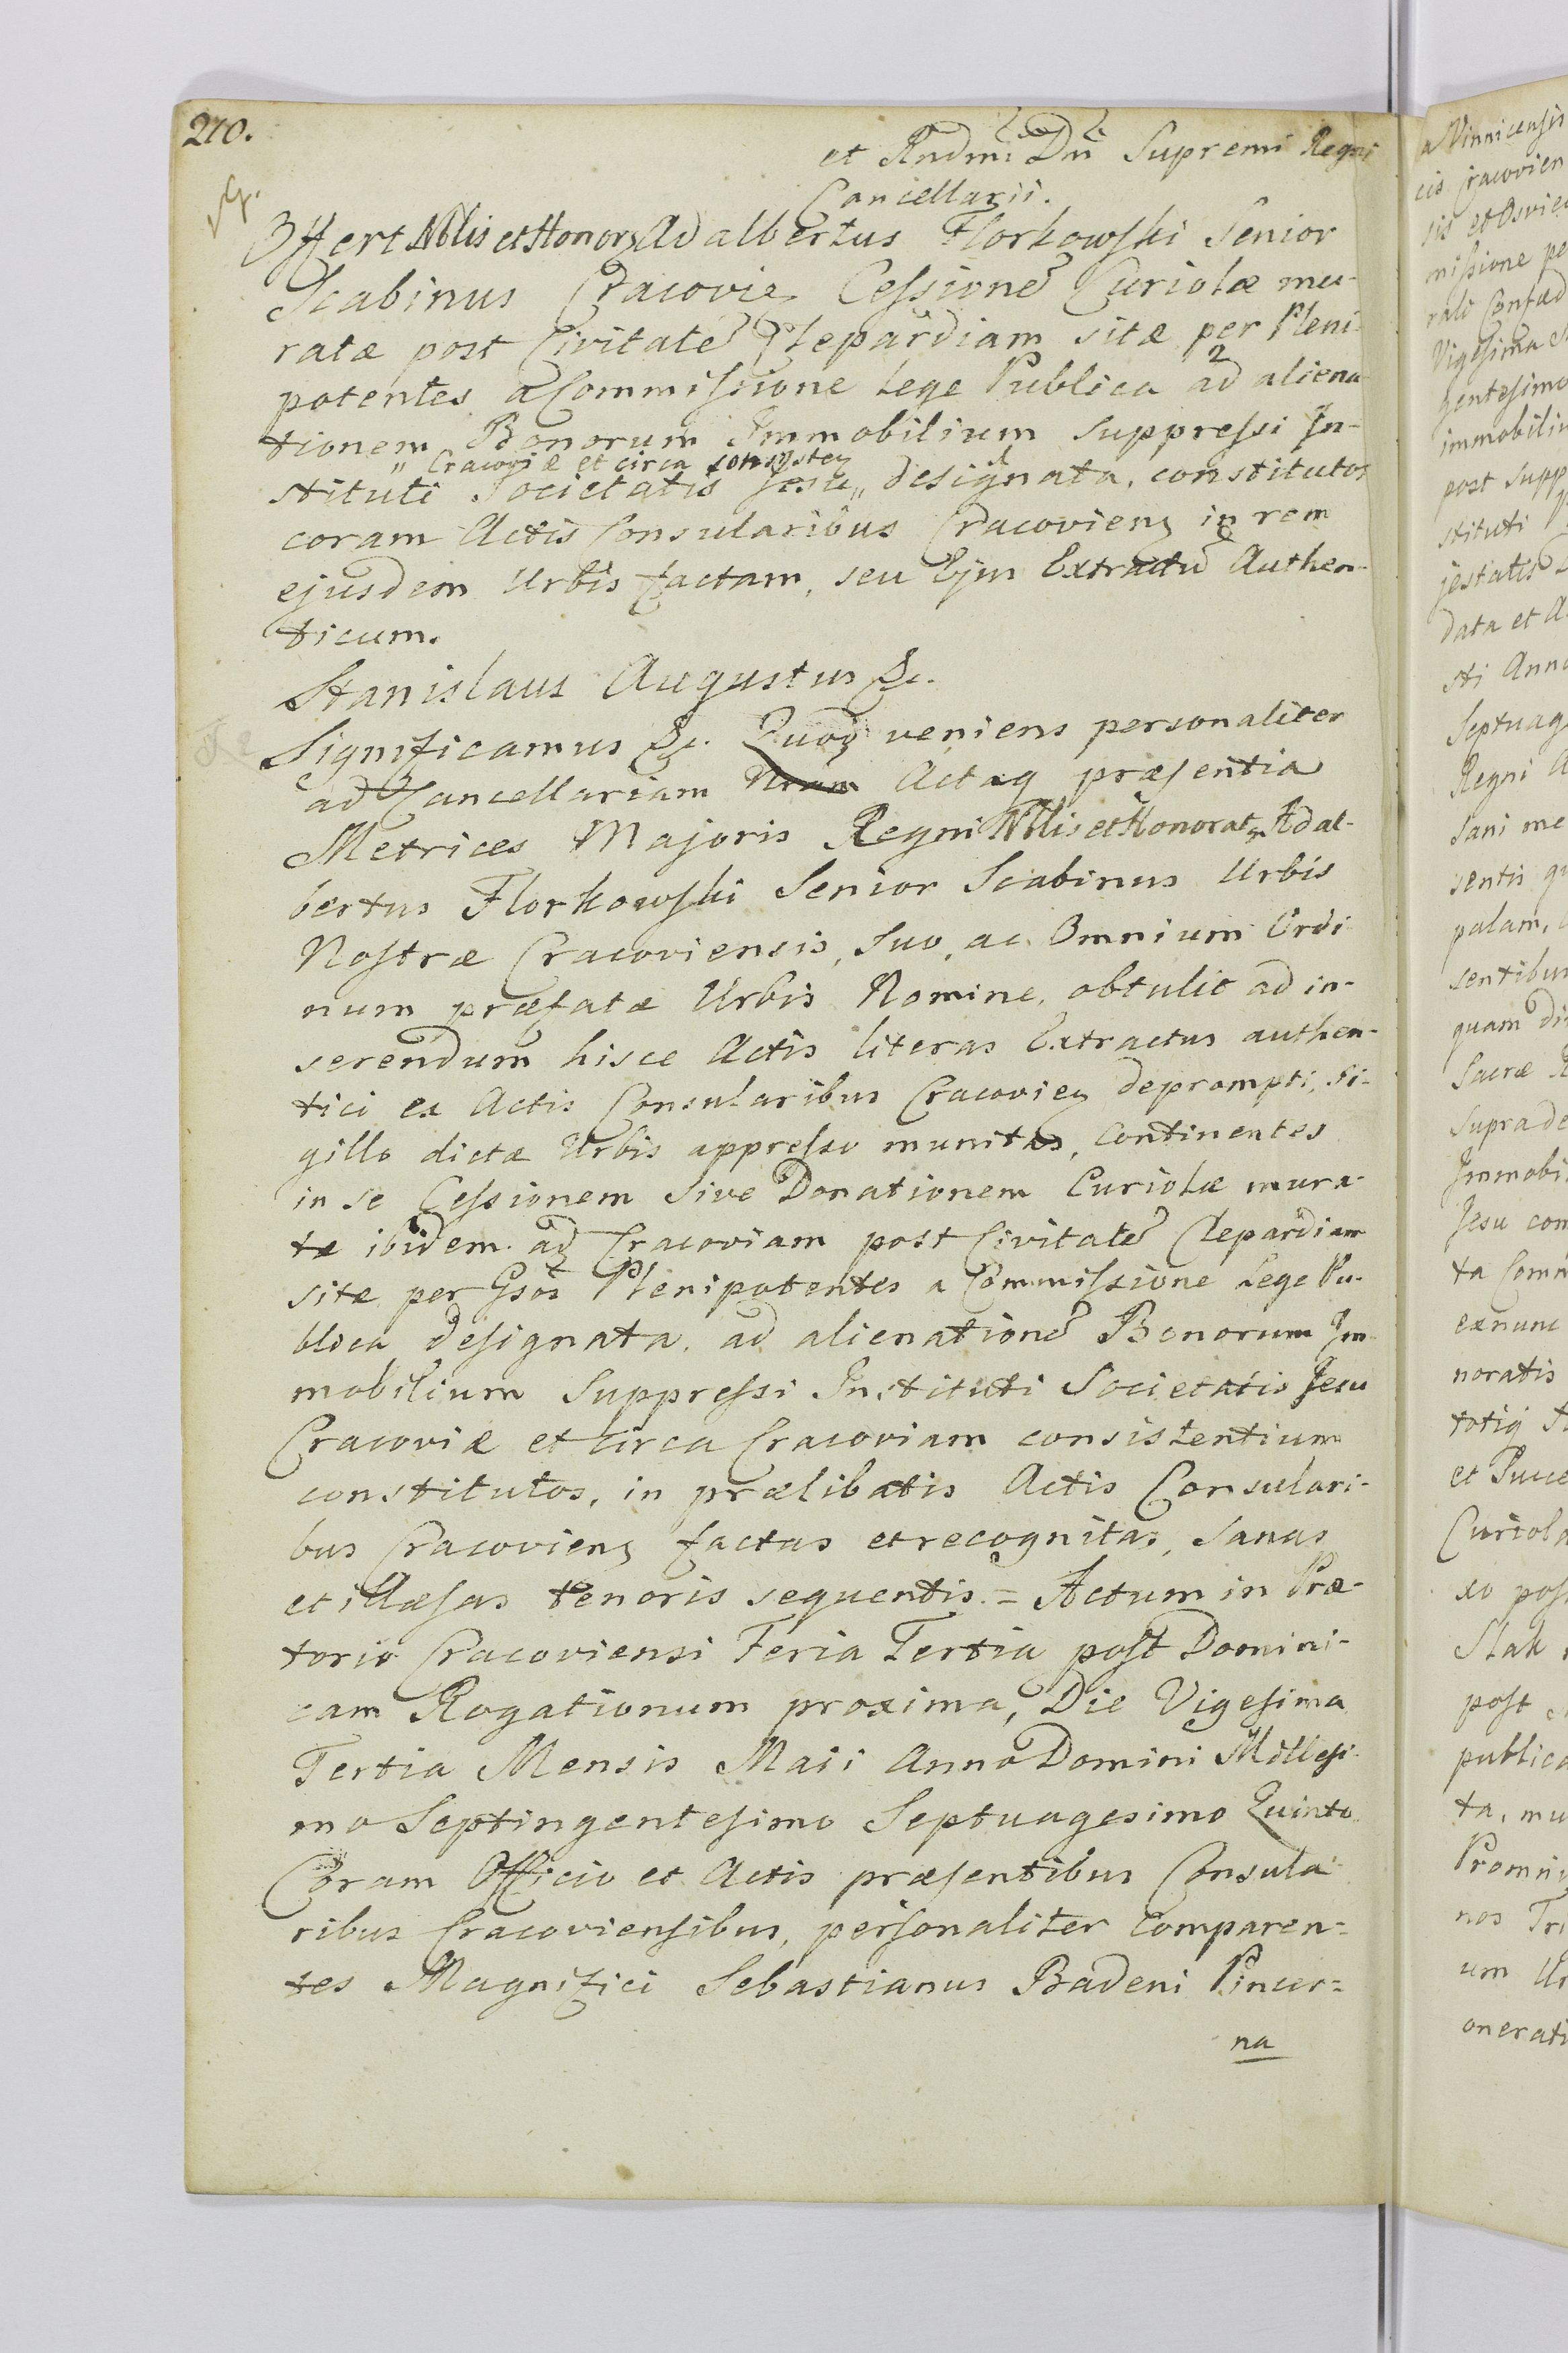 210.
et Rndmi Dni Supremi Regni
Cancellarii.
Offert Nblis et Honorz Adalbertus Florkowski Senior
Scabinus Cracoviez Cessione Curiolæ mu-
ratæ post Civitate Clepardiam sitæ per Pleni-
potentes a Commissione Lege Publica ad aliena-
tionem Bonorum Immobilium Suppressi In-
" Cracoviæ et circa consistez
stituti Societatis Jesu " designata, constitutos
coram Actis Consularibus Cracovienz in rem
ejusdem Urbis factam, seu Ejus Extractu Authen-
ticum.
Stanislaus Augustus &c.
Significamus &c. Quod veniens personaliter
ad Cancellariam Actaq præsentia
Metrices Majoris Regni Nblis et Honoratz Adal-
bertus Florkowski Senior Scabinus Urbis
Nostræ Cracoviensis, suo, ac Omnium Ordi-
num præfatæ Urbis Nomine, obtulit ad in-
serendum hisce Actis literas Extractus authen-
tici ex Actis Consularibus Cracoviez deprompti, si-
gillo dictæ Urbis appresso munitas, Continentes
in se Cessionem sive Donationem Curiolæ mura-
tæ ibidem ad Cracoviam post Civitate Clepardiam
sitæ per Gsos Plenipotentes a Commissione Lege Pu-
blica designata, ad alienatione Bonorum Im-
mobilium Suppressi Instituti Societatis Jesu
Cracoviæ et circa Cracoviam consistentium
constitutos, in prælibatis Actis Consulari-
bus Cracovienz factas et recognitas, Sanas
et illæsas tenoris sequentis. = Actum in Præ-
torio Cracoviensi Feria Tertia post Domini-
cam Rogationum proxima, Die Vigesima
Tertia Mensis Maii Anno Domini Millesi-
mo Septingentesimo Septuagesimo Quinto
Coram Officio et Actis præsentibus Consula-
ribus Cracoviensibus, personaliter comparen=
tes Magnifici Sebastianus Badeni Pincer=
na
a Vinnicensis
cis Cracovien
sis et Osvie
missione pe
rali Confæd
Vigesima
gentesimo
immobiliu
post supp
stituti
jestatis
data et A
sti Anno
Septuag
Regni A
sani me
sentis qu
palam,
sentibus
quam di
Sacræ R
supra de
Immobi
Jesu con
ta Comm
exnunc
noratis
totiq
et Succe
Curiola
xo post
Slak
post
publica
ta, mu
Promni
nos Tri
um Ur
onerati